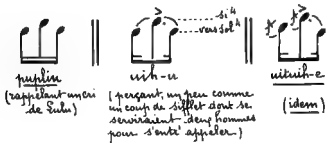 si⁴
vers sol⁴
puplin
(rappelant un cri
de Lulu)
uih-u
(perçant, un peu comme
un coup de sifflet dont se
serviraient deux hommes
pour s'entr'appeler)
uituih-e
(idem)